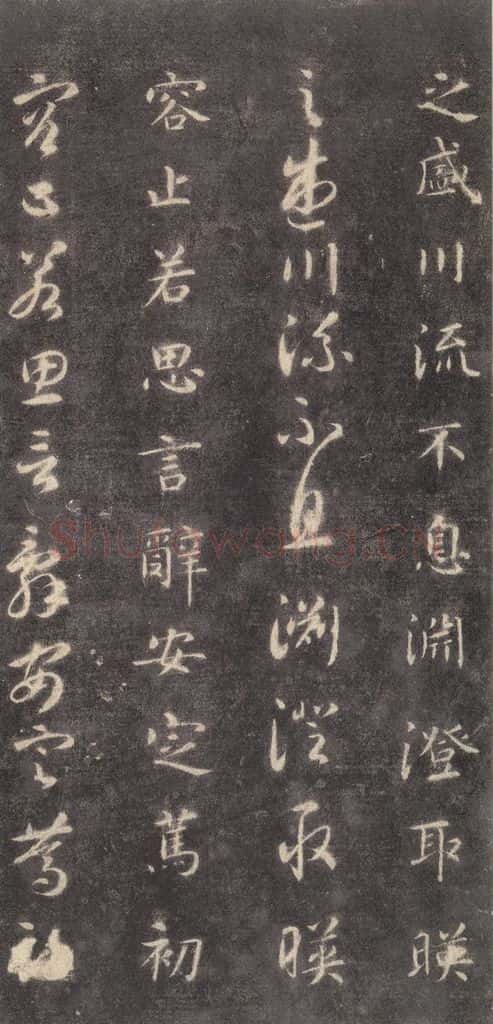 之盛川流不息淵澄取暎
之盛川流不息淵澄取暎
容止若思言辭安定篤初
容止若思言辭安定篤初
shufawang.cn